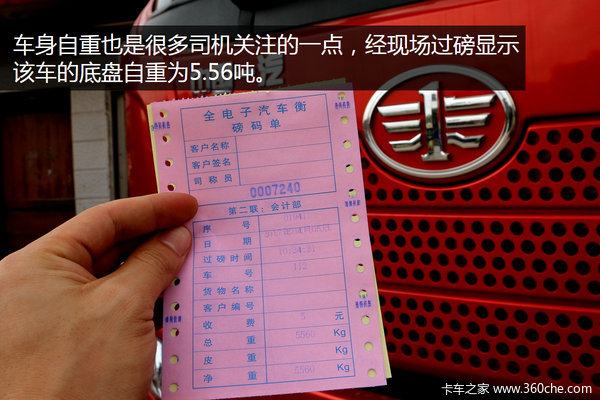 车身自重也是很多司机关注的一点，经现场过磅显示
该车的底盘自重为5.56吨。
全电子汽车衡
磅码单
客户名称
客户签名
司称员
0007240
第二联：会计部
序号
日期
过磅时间
车号 112
货物名称
客户编号
收费 5 元
总重 5560 Kg
皮重 Kg
净重 5560 Kg
卡车之家 www.360che.com